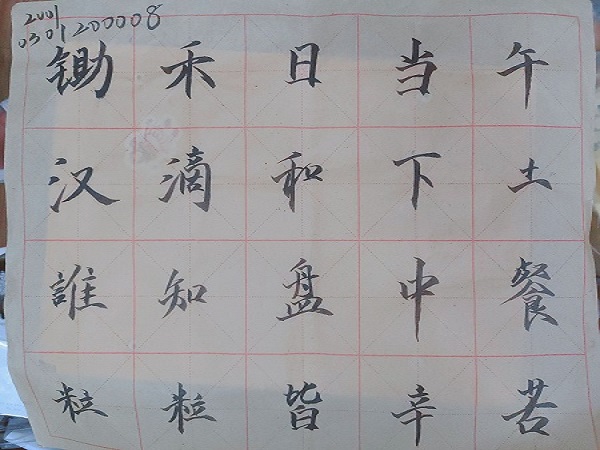 2001
0301200008
锄禾日当午
汉滴和下土
誰知盘中餐
粒粒皆辛苦